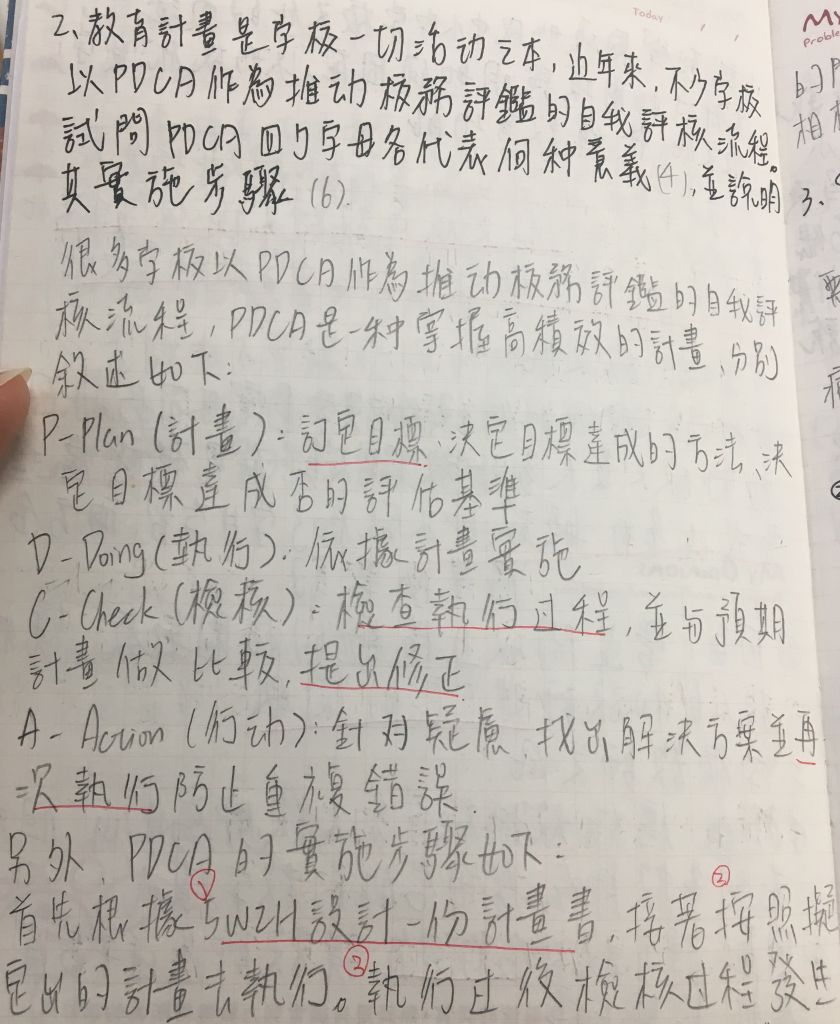 Today
2、教育計畫是学校一切活动之本，近年來，不少学校
以PDCA作為推动校務評鑑的自我評核流程。
試問PDCA四个字母各代表何种意義(4)，並說明
其實施步驟(6).
很多学校以PDCA作為推动校務評鑑的自我評
核流程，PDCA是一种掌握高績效的計畫，分別
敘述如下：
P-Plan(計畫)：訂定目標、決定目標達成的方法、決
定目標達成否的評估基準
D-Doing(執行)：依據計畫實施
C-Check(檢核)：檢查執行过程，並与預期
計畫做比較，提出修正
A-Action(行动)：針对疑慮，找出解決方案並再
一次執行防止重複錯誤.
另外，PDCA的實施步驟如下：
首先根據①5W2H設計一份計畫書，接著②按照擬
定出的計畫去執行。③執行过後檢核过程發生
My
Proble
的P
相
3.